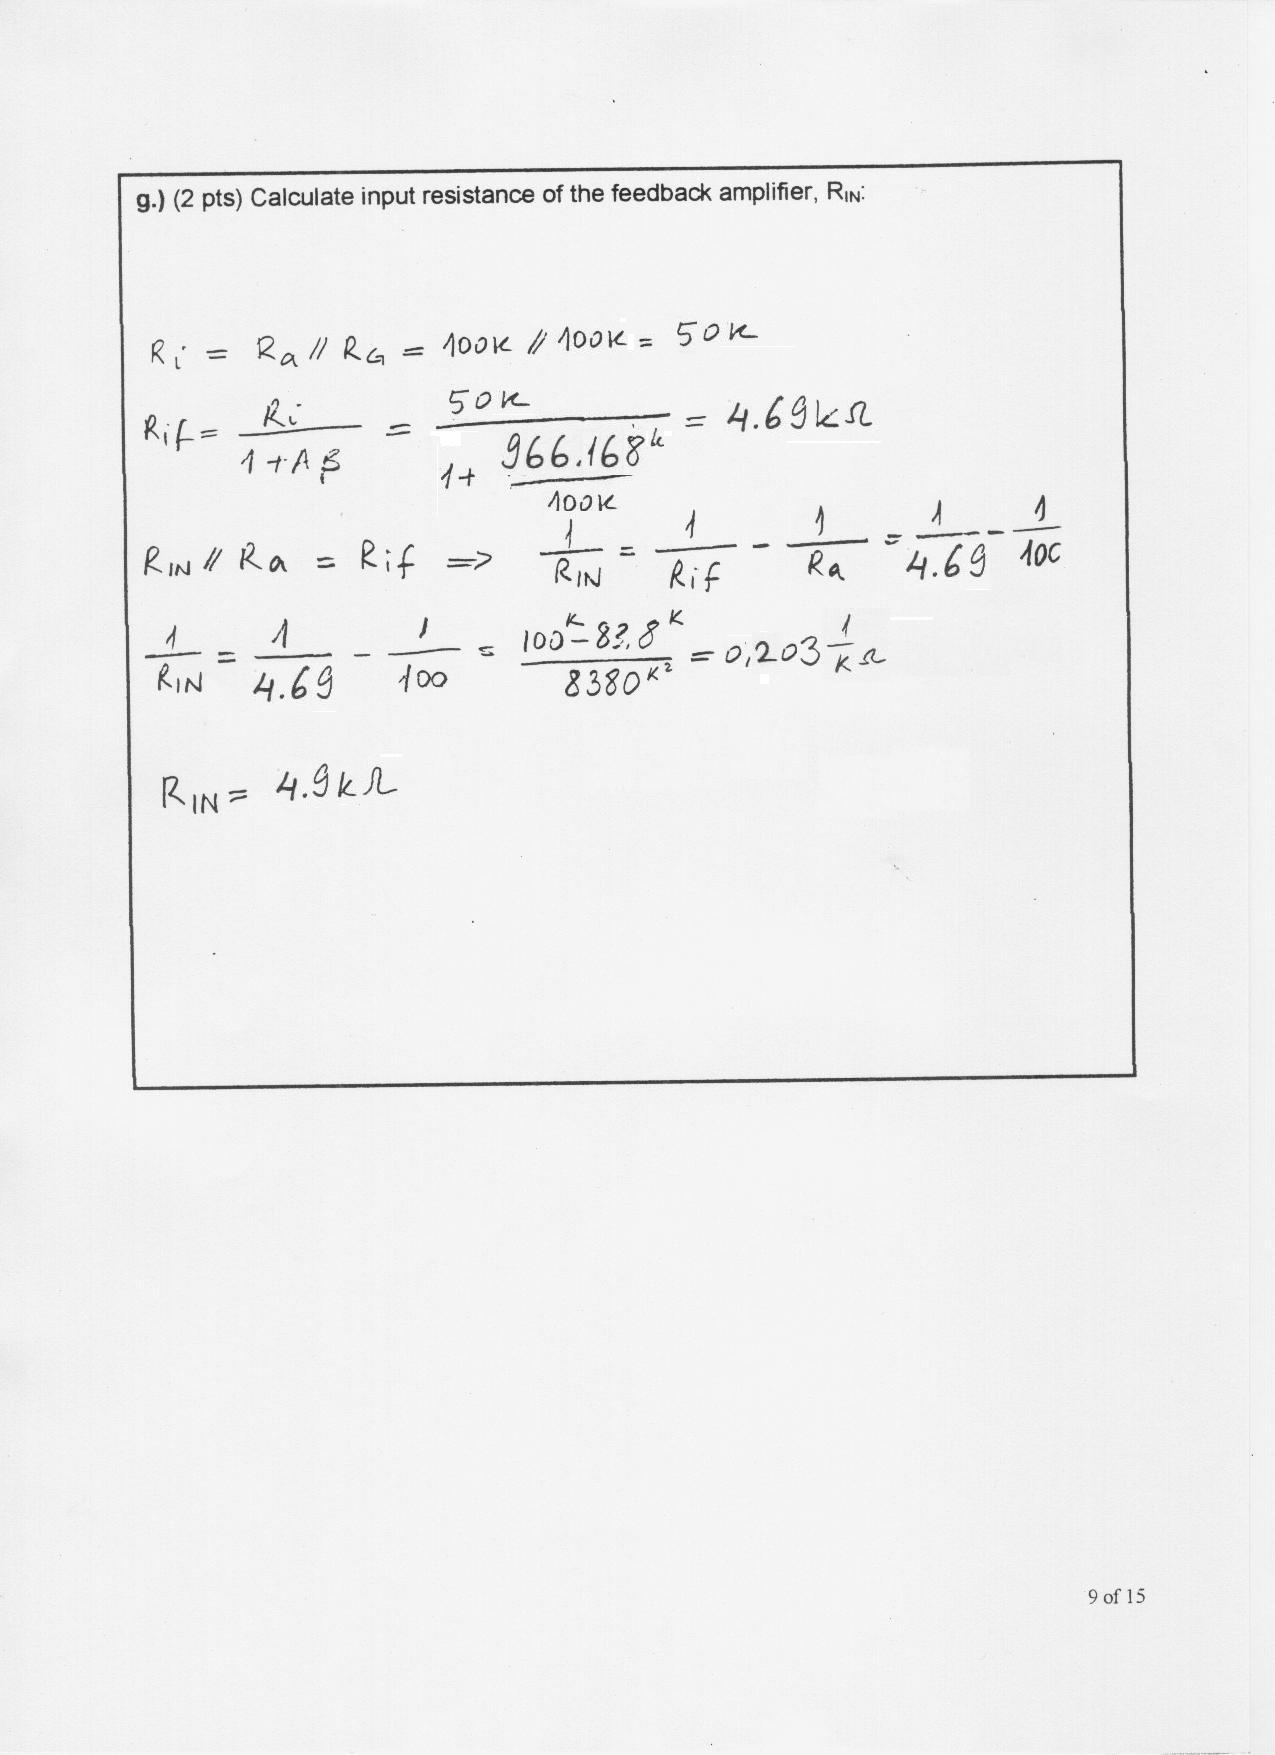 g.) (2 pts) Calculate input resistance of the feedback amplifier, RIN:
Ri = Ra // RG = 100K // 100K = 50K
Rif = Ri / (1 + Aβ) = 50K / (1 + 966.168k / 100K) = 4.69kΩ
RIN // Ra = Rif => 1/RIN = 1/Rif - 1/Ra = 1/4.69 - 1/100
1/RIN = 1/4.69 - 1/100 = (100K - 83.8K) / 8380K² = 0,203 1/kΩ
RIN = 4.9kΩ
9 of 15